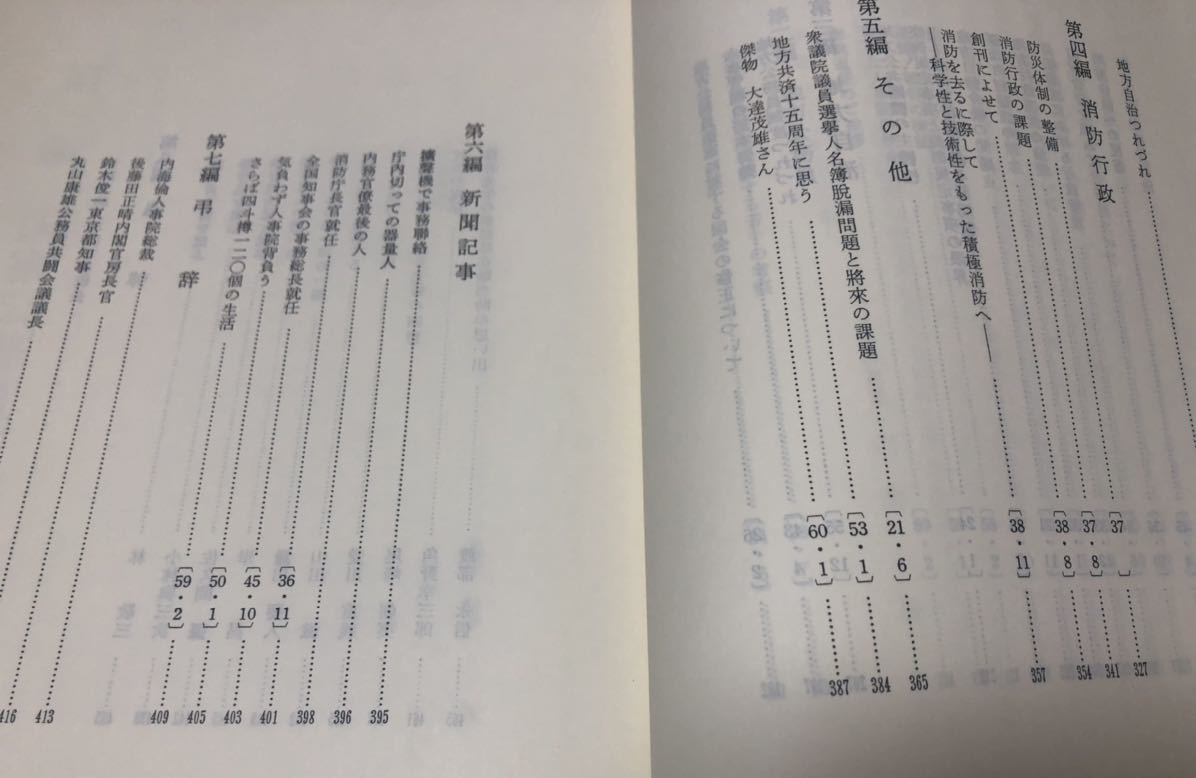 地方自治つれづれ
第四編　消防行政
防災体制の整備……〔37　〕……327
消防行政の課題……〔37・8〕……341
創刊によせて……〔38・8〕……354
消防を去るに際して
――科学性と技術性をもった積極消防へ――……〔38・11〕……357
第五編　その他
衆議院議員選擧人名簿脱漏問題と將來の課題……〔21・6〕……365
地方共済十五周年に思う……〔53・1〕……384
傑物　大達茂雄さん……〔60・1〕……387
第六編　新聞記事
擴聲機で事務聯絡……395
庁内切っての器量人……396
内務官僚最後の人……398
消防庁長官就任……〔36・11〕……401
全国知事会の事務総長就任……〔45・10〕……403
気負わず人事院背負う……〔50・1〕……405
さらば四斗樽一二〇個の生活……〔59・2〕……409
第七編　弔辞
内海倫人事院総裁……413
後藤田正晴内閣官房長官……416
鈴木俊一東京都知事
丸山康雄公務員共闘会議議長